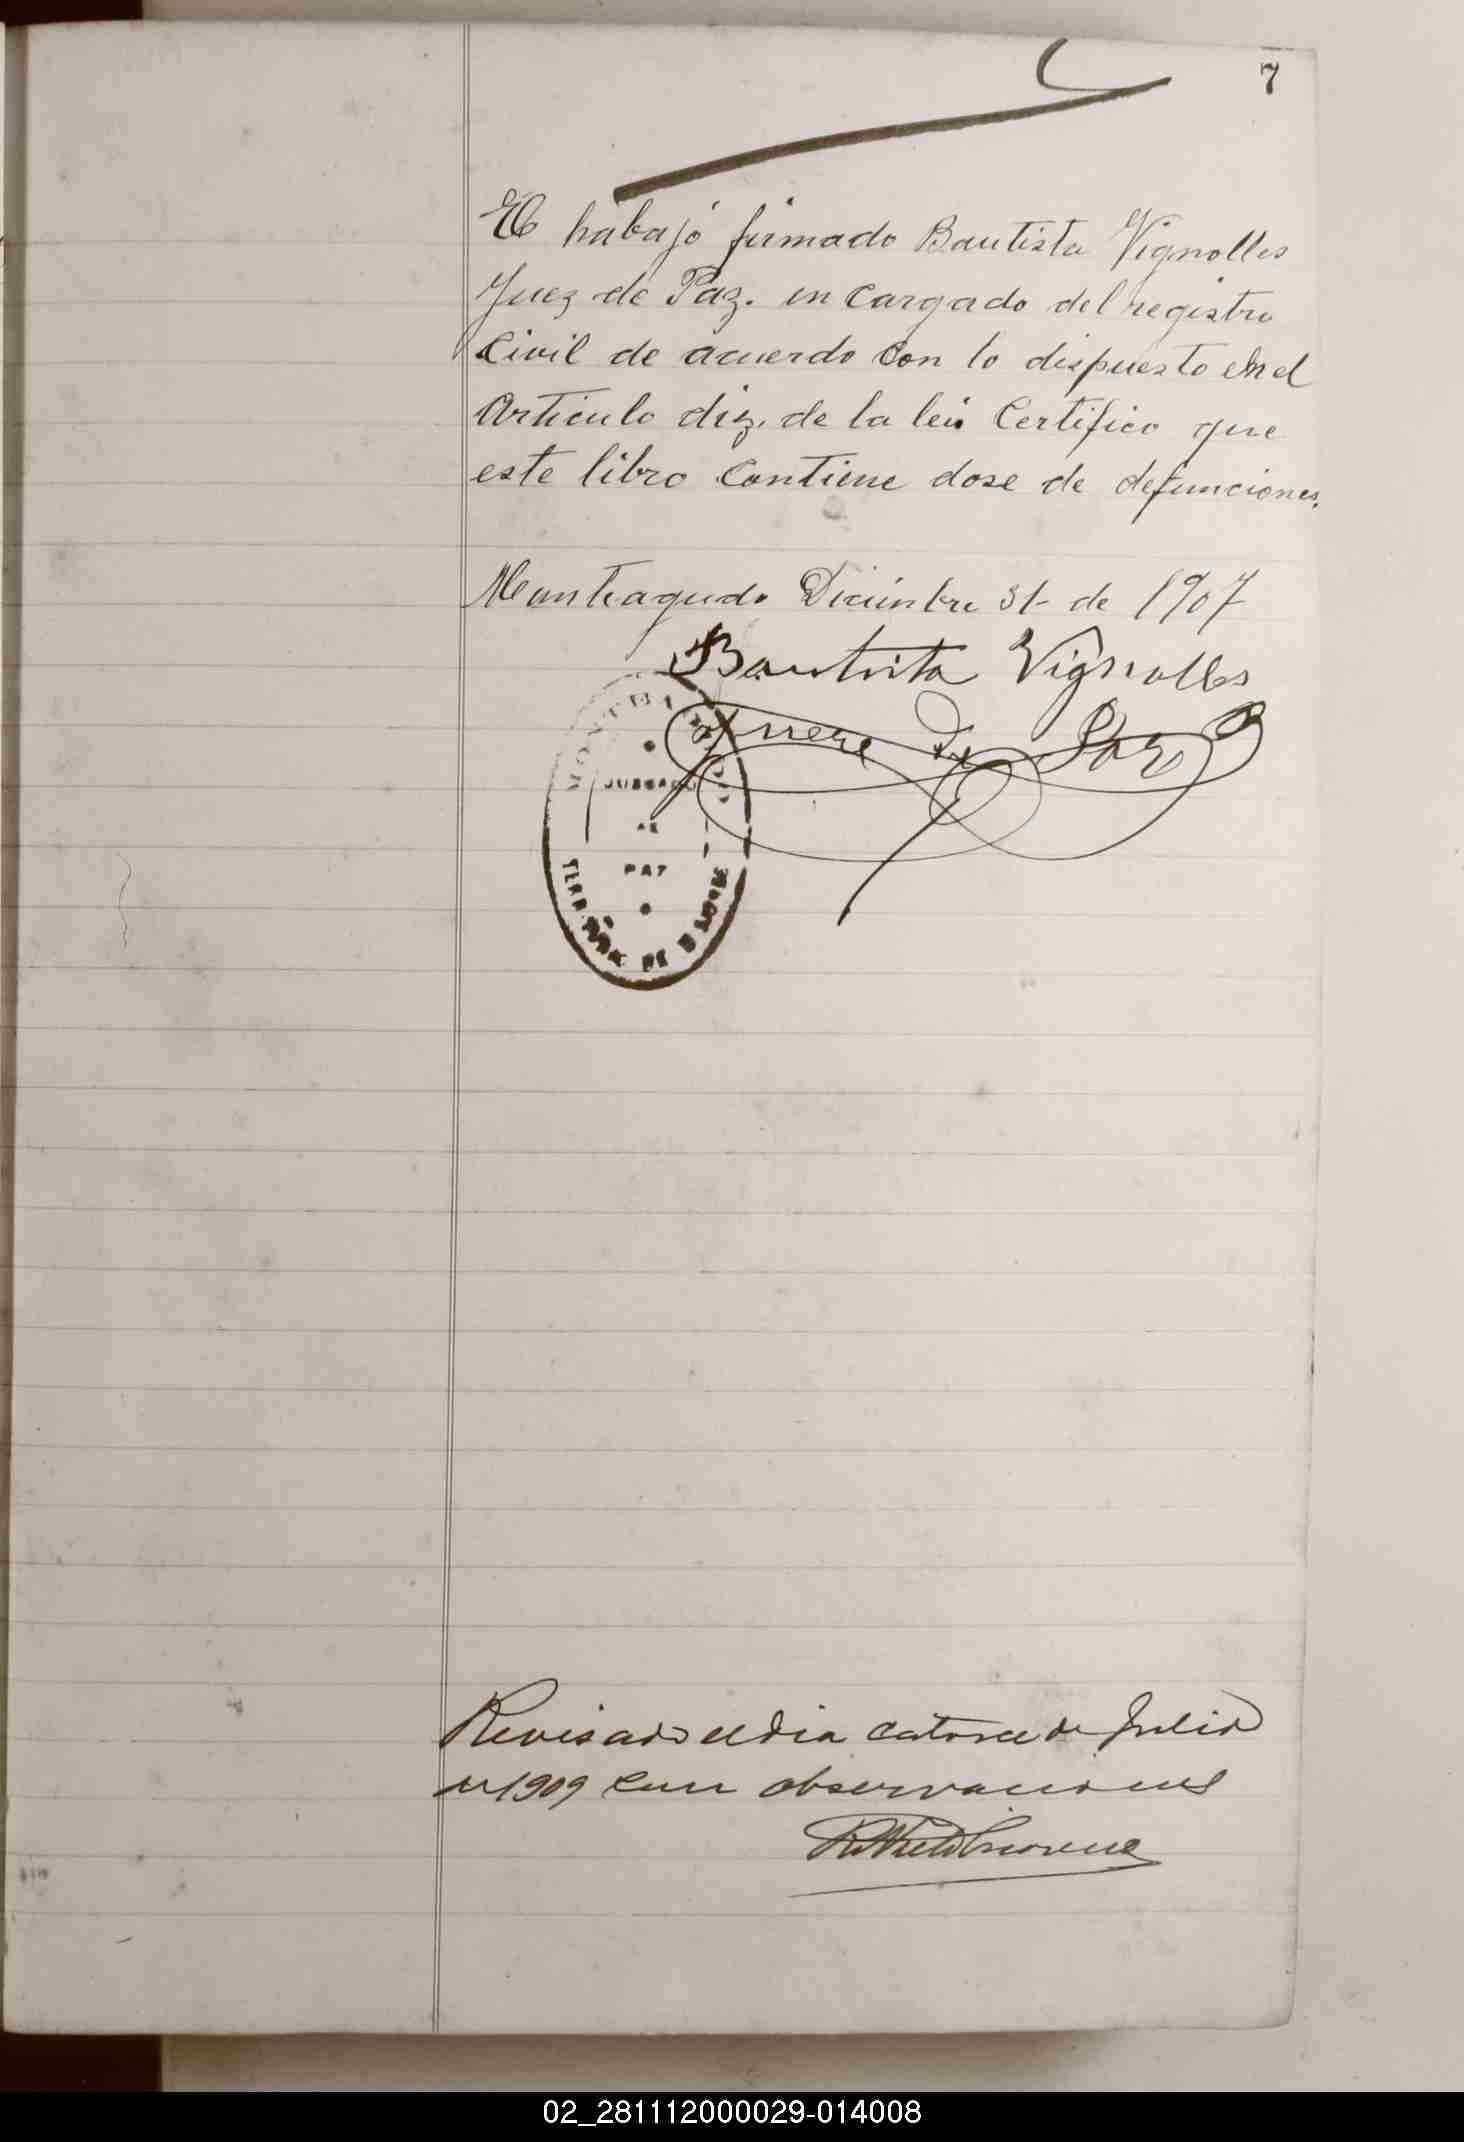 7
El habajo firmado Bautista Vignolles
Juez de Paz. en cargado del registro
Civil de acuerdo con lo dispuesto en el
Articulo diz. de la lei Certifico que
este libro Contiene dose de defunciones.
Monteagudo Diciembre 31 de 1907
Bautista Vignolles
Juez de Paz
MONTEAGUDO
JUZGADO
DE
PAZ
DE
Revisado el dia catorce de Julio
de 1909 con observaciones
02_281112000029-014008